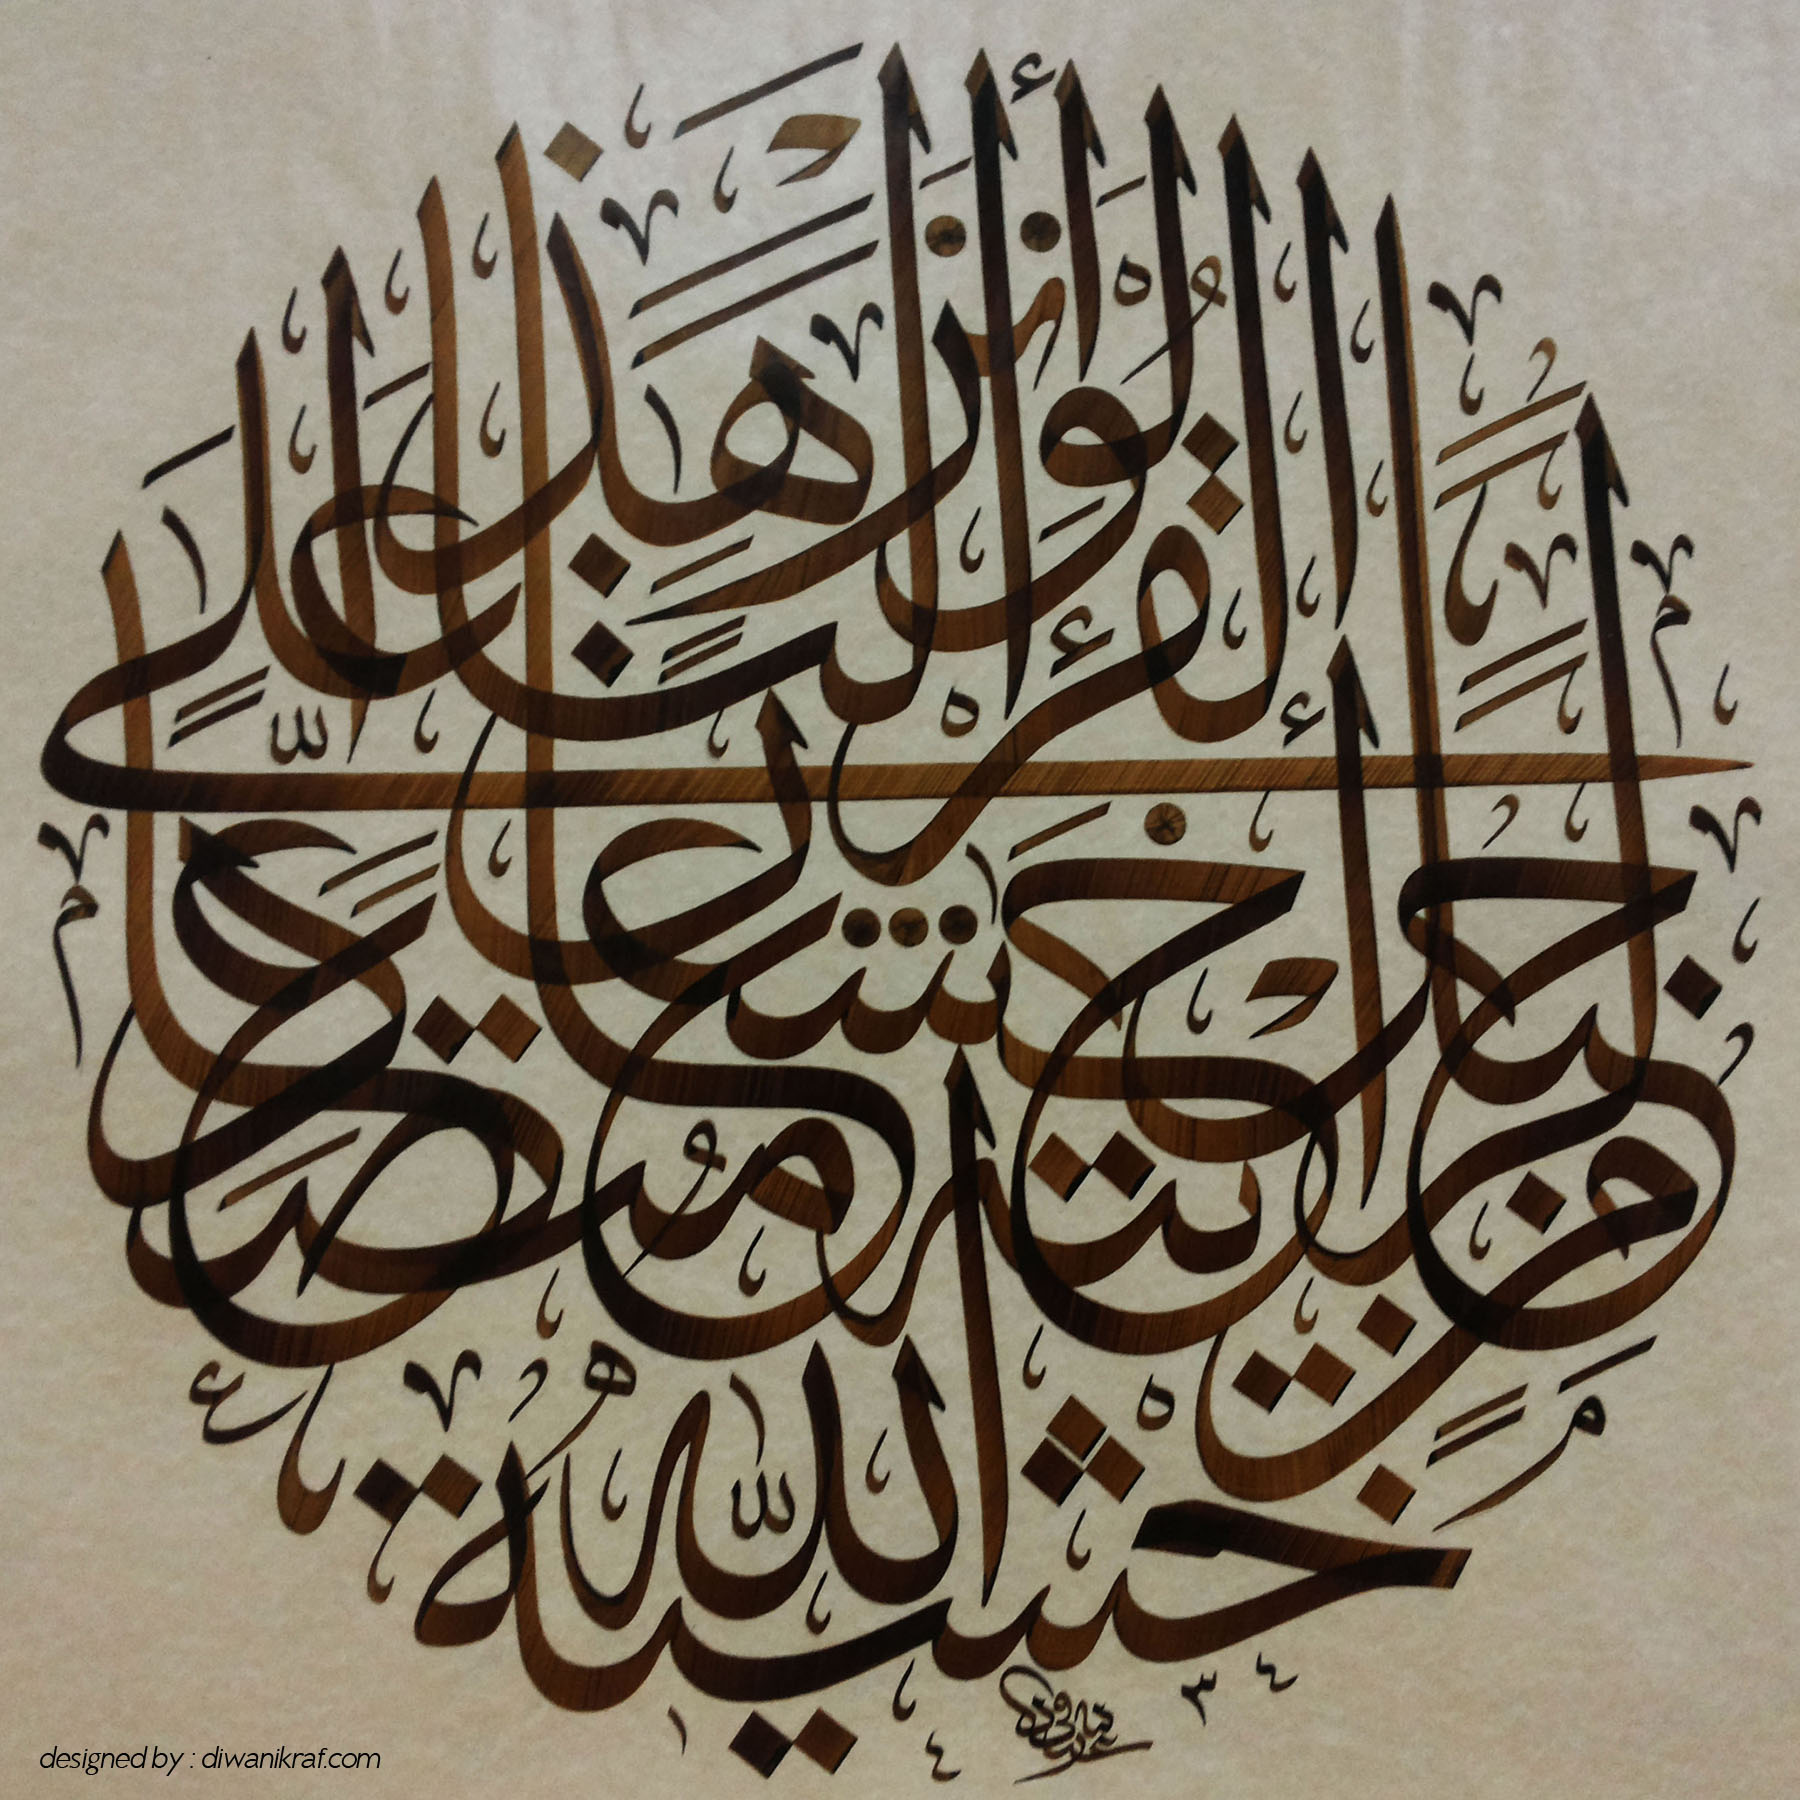 لَوْ أَنْزَلْنَا هٰذَا الْقُرْاٰنَ عَلٰى جَبَلٍ لَرَاَيْتَهُ خَاشِعًا مُتَصَدِّعًا مِنْ خَشْيَةِ اللّٰهِ
١٤٣٤
designed by : diwanikraf.com